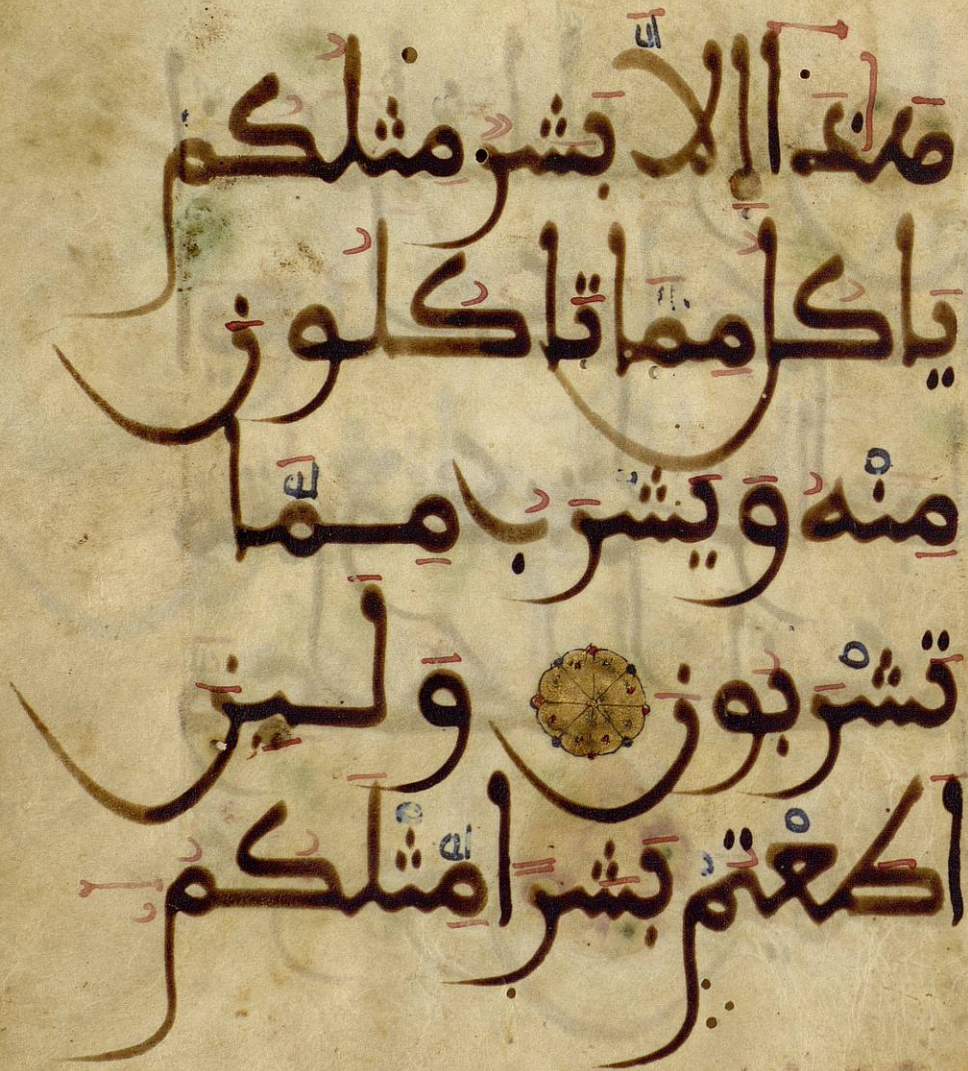 مَا هَٰذَا إِلَّا بَشَرٌ مِّثْلُكُمْ
يَاكُلُ مِمَّا تَاكُلُونَ
مِنْهُ وَيَشْرَبُ مِمَّا
تَشْرَبُونَ وَلَئِنَ
اَطَعْتُم بَشَرًا مِّثْلَكُمُ